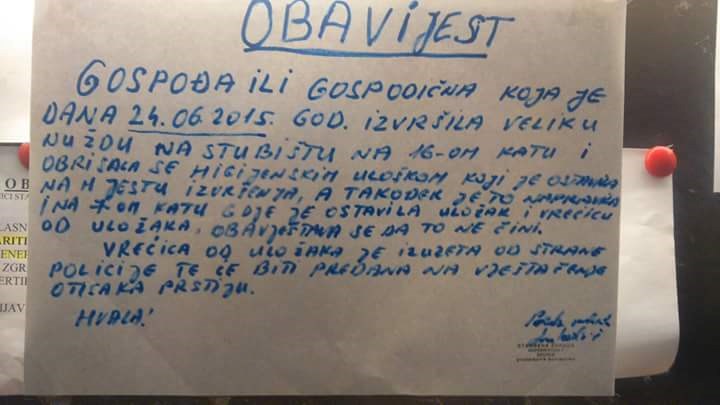 OBAVIJEST
GOSPOĐA ILI GOSPODIČNA KOJA JE
DANA 24.06.2015. GOD. IZVRŠILA VELIKU
NUŽDU NA STUBIŠTU NA 16-OM KATU I
OBRISALA SE HIGIJENSKIM ULOŠKOM KOJI JE OSTAVILA
NA MJESTU IZVRŠENJA, A TAKOĐER JE TO NAPRAVILA
I NA 7-OM KATU GDJE JE OSTAVILA ULOŽAK I VREĆICU
OD ULOŽAKA, OBAVJEŠTAVA SE DA TO NE ČINI.
VREĆICA OD ULOŽAKA JE IZUZETA OD STRANE
POLICIJE TE ĆE BITI PREDANA NA VJEŠTAČENJE
OTISAKA PRSTIJU.
HVALA!